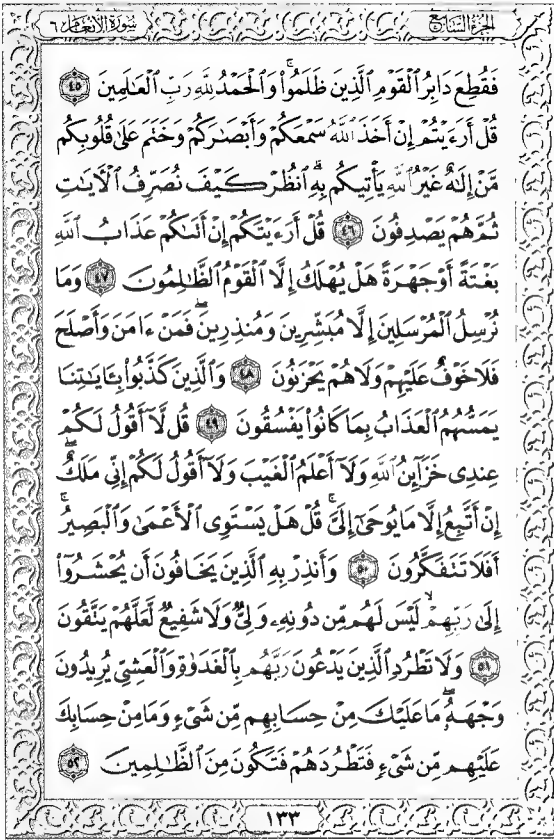 سورة الأنعام ٦
الجزء السابع
فَقُطِعَ دَابِرُ ٱلْقَوْمِ ٱلَّذِينَ ظَلَمُوا۟ ۚ وَٱلْحَمْدُ لِلَّهِ رَبِّ ٱلْعَٰلَمِينَ ٤٥
قُلْ أَرَءَيْتُمْ إِنْ أَخَذَ ٱللَّهُ سَمْعَكُمْ وَأَبْصَٰرَكُمْ وَخَتَمَ عَلَىٰ قُلُوبِكُم
مَّنْ إِلَٰهٌ غَيْرُ ٱللَّهِ يَأْتِيكُم بِهِ ۗ ٱنظُرْ كَيْفَ نُصَرِّفُ ٱلْءَايَٰتِ
ثُمَّ هُمْ يَصْدِفُونَ ٤٦ قُلْ أَرَءَيْتَكُمْ إِنْ أَتَىٰكُمْ عَذَابُ ٱللَّهِ
بَغْتَةً أَوْ جَهْرَةً هَلْ يُهْلَكُ إِلَّا ٱلْقَوْمُ ٱلظَّٰلِمُونَ ٤٧ وَمَا
نُرْسِلُ ٱلْمُرْسَلِينَ إِلَّا مُبَشِّرِينَ وَمُنذِرِينَ ۖ فَمَنْ ءَامَنَ وَأَصْلَحَ
فَلَا خَوْفٌ عَلَيْهِمْ وَلَا هُمْ يَحْزَنُونَ ٤٨ وَٱلَّذِينَ كَذَّبُوا۟ بِـَٔايَٰتِنَا
يَمَسُّهُمُ ٱلْعَذَابُ بِمَا كَانُوا۟ يَفْسُقُونَ ٤٩ قُل لَّآ أَقُولُ لَكُمْ
عِندِى خَزَآئِنُ ٱللَّهِ وَلَآ أَعْلَمُ ٱلْغَيْبَ وَلَآ أَقُولُ لَكُمْ إِنِّى مَلَكٌ ۖ
إِنْ أَتَّبِعُ إِلَّا مَا يُوحَىٰٓ إِلَىَّ ۚ قُلْ هَلْ يَسْتَوِى ٱلْأَعْمَىٰ وَٱلْبَصِيرُ ۚ
أَفَلَا تَتَفَكَّرُونَ ٥٠ وَأَنذِرْ بِهِ ٱلَّذِينَ يَخَافُونَ أَن يُحْشَرُوٓا۟
إِلَىٰ رَبِّهِمْ ۙ لَيْسَ لَهُم مِّن دُونِهِۦ وَلِىٌّ وَلَا شَفِيعٌ لَّعَلَّهُمْ يَتَّقُونَ
٥١ وَلَا تَطْرُدِ ٱلَّذِينَ يَدْعُونَ رَبَّهُم بِٱلْغَدَوٰةِ وَٱلْعَشِىِّ يُرِيدُونَ
وَجْهَهُۥ ۖ مَا عَلَيْكَ مِنْ حِسَابِهِم مِّن شَىْءٍ وَمَا مِنْ حِسَابِكَ
عَلَيْهِم مِّن شَىْءٍ فَتَطْرُدَهُمْ فَتَكُونَ مِنَ ٱلظَّٰلِمِينَ ٥٢
١٣٣